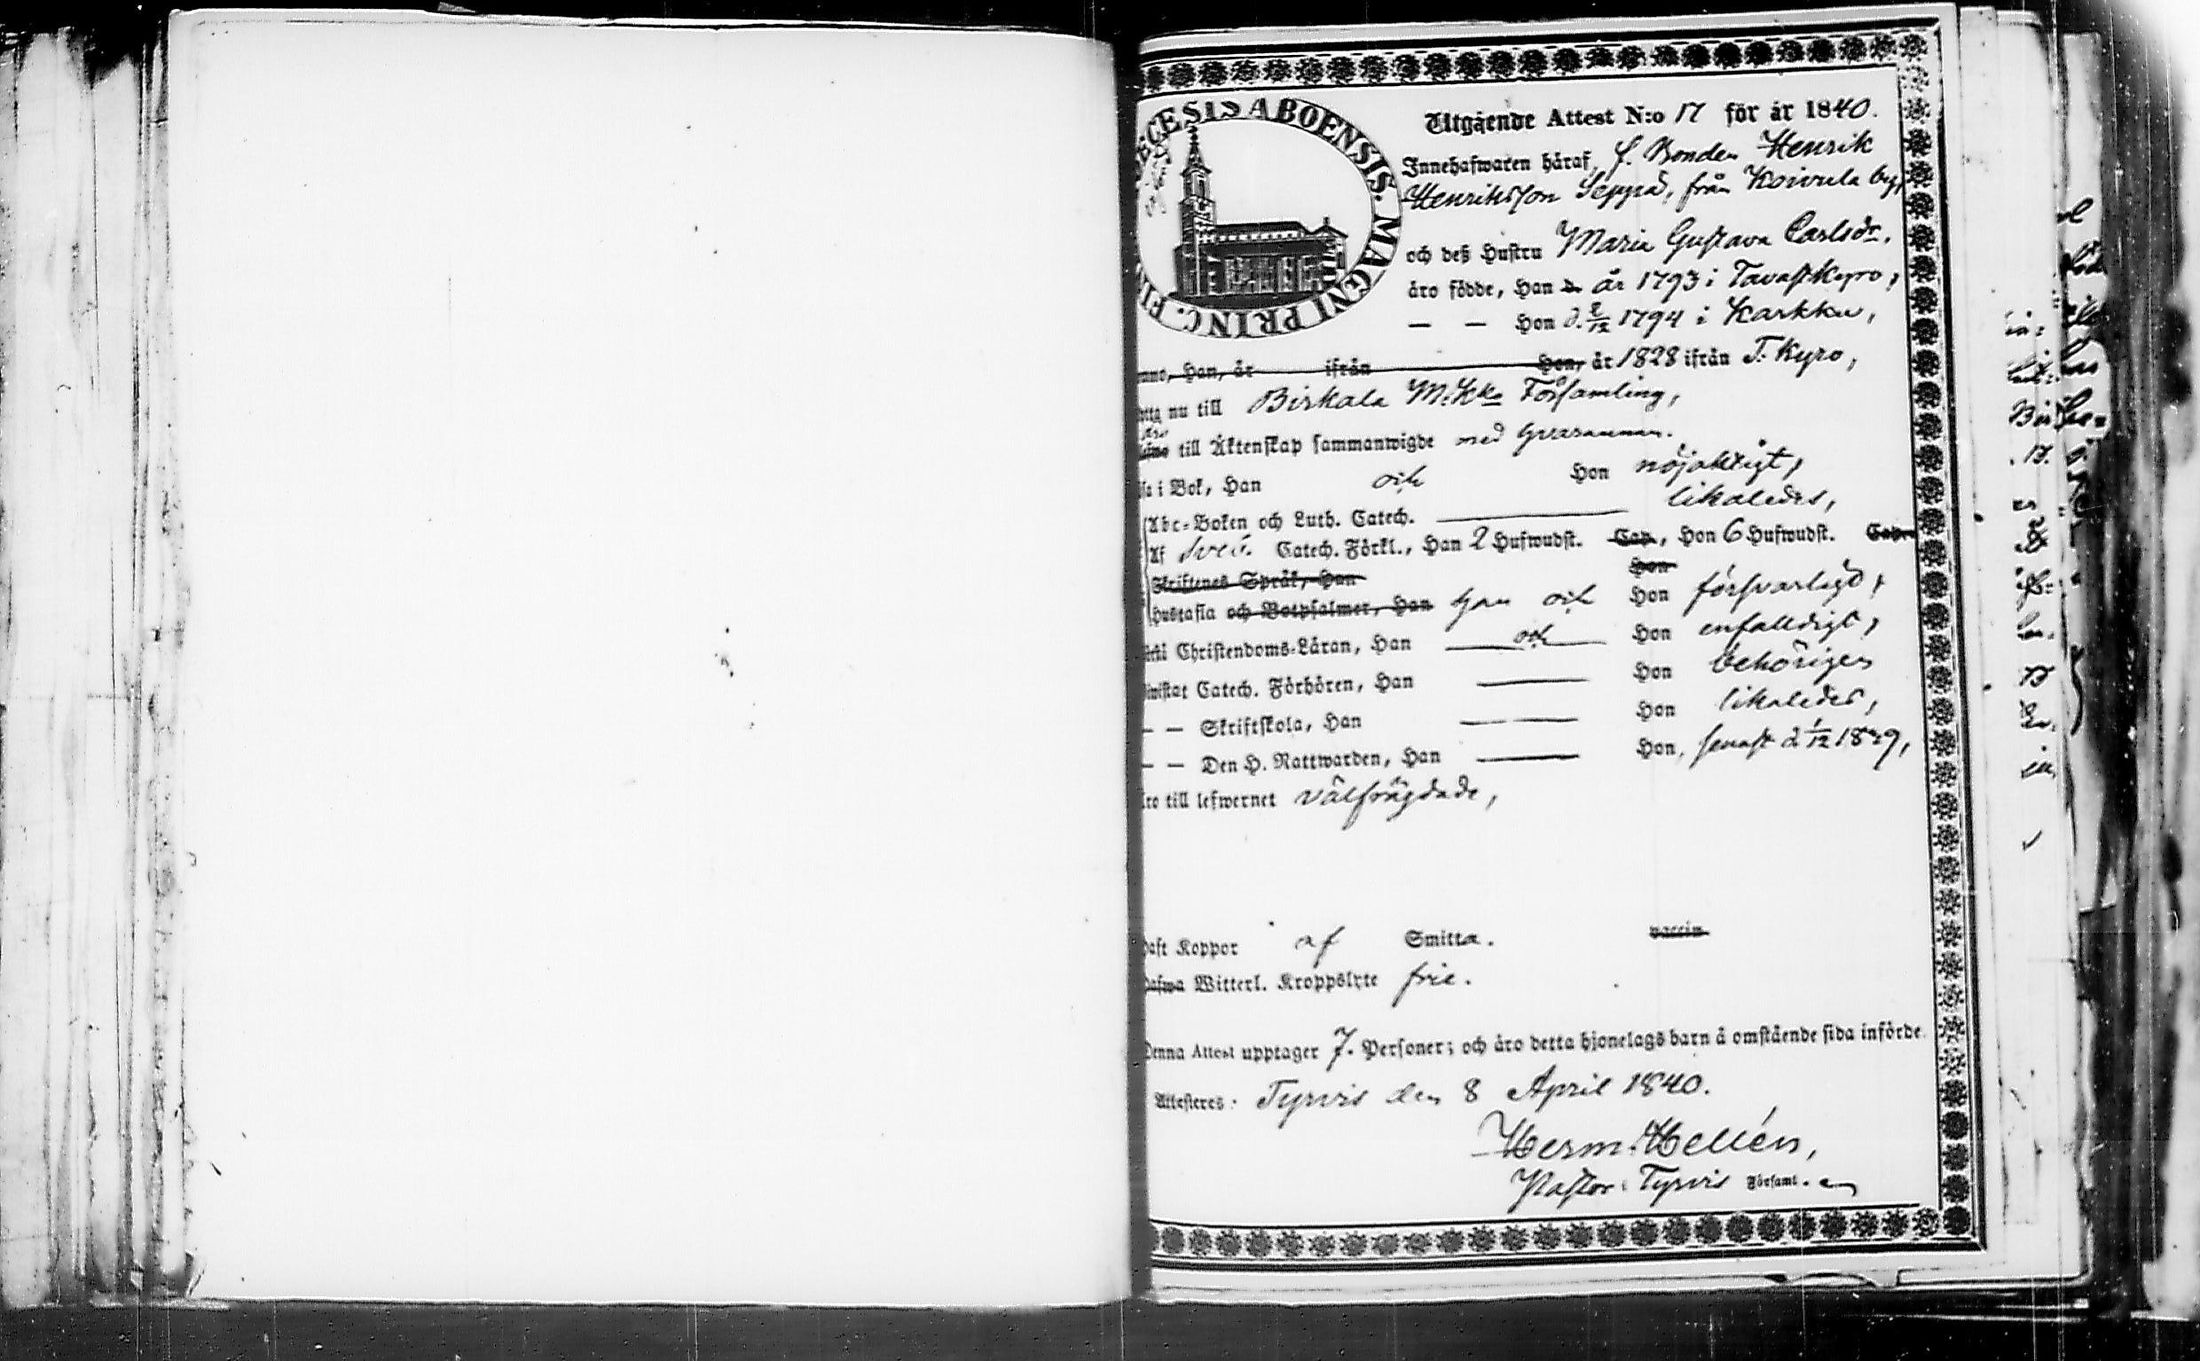 Utgående Attest N:o 17 för år 1840.
Innehafwaren häraf, f. Bonden Henrik
Henriksson Seppä, från Koivula by,
och deß Hustru Maria Gustava Carlsdr.
äro födde, Han d. år 1793 i Tavastkyro,
— — Hon d. 2/12 1794 i Karkku,
Han, år ifrån Hon, år 1828 ifrån T. Kyro,
nu till Birkala M:Kka Församling,
äro till Äktenskap sammanwigde med
i Bok, Han och Hon nöjaktigt,
Abc-Boken och Luth. Catech. likaledes,
Af Sveb. Catech. Förkl., Han 2 Hufwudst. Cap., Hon 6 Hufwudst. Cap.
Skriftenes Språk, Han Hon
Hustafla och Botpsalmer, Han Han och Hon försvarligt,
Christendoms-Läran, Han och Hon enfalldigt,
Catech. Förhören, Han — Hon behörigen
— — Skriftskola, Han — Hon likaledes,
— — Den H. Nattwarden, Han — Hon, senast d 1/12 1839,
till lefwernet välfrägdade,
haft Koppor af Smitta. vaccin.
hafwa Witterl. Kroppslyte frie.
Denna Attest upptager 7. Personer; och äro detta hjonelags barn å omstående sida införde.
Attesteres: Tyrvis den 8 April 1840.
Herm. Hellén,
Pastor i Tyrvis Församl.
DIŒCESIS ABOENSIS. MAGNI PRINC. FIN